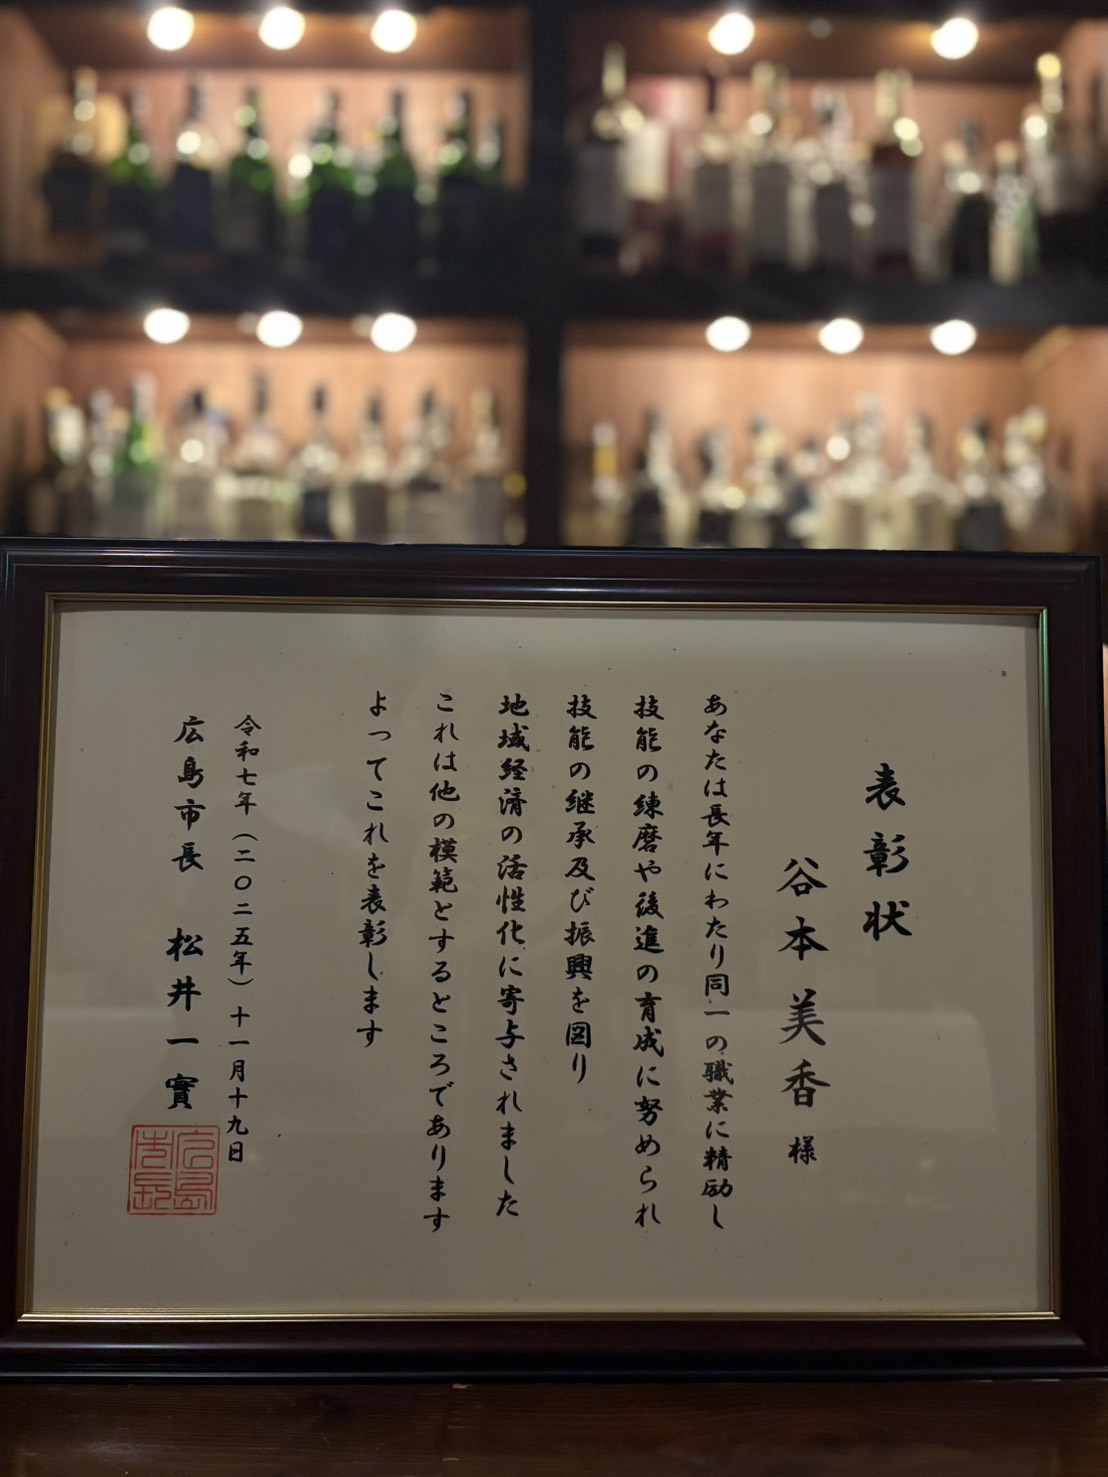 表彰状
谷本美香様
あなたは長年にわたり同一の職業に精励し
技能の練磨や後進の育成に努められ
技能の継承及び振興を図り
地域経済の活性化に寄与されました
これは他の模範とするところであります
よってこれを表彰します
令和七年(二〇二五年)十一月十九日
広島市長 松井一實
広島市長